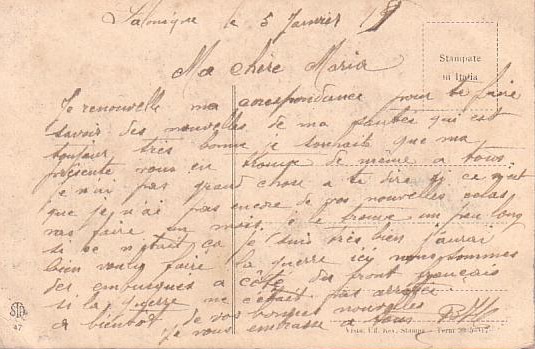 Salonique le 5 Janvier 17
Ma chère Maria
Stampate
in Italia
Je renouvelle ma corespondance pour te faire
savoir des nouvelles de ma santée qui est
toujour très bonne je souhaite que ma
présente vous en trouve de même a tous.
je n'ai pas grand chose a te dire si ce n'est
que je n'ai pas encore de vos nouvelles celas
vas faire un mois. a le trouve un peu long
si ce n'était ça je suis très bien j'aurai
bien voulu faire la guerre icy nous sommes
des embusqués a côté du front français
si la guerre me était pas arrêter
a bientôt de vos bonnes nouvelles
je vous embrasse a tous
STA
47
Visto Uff. Rev. Stampa - Terni